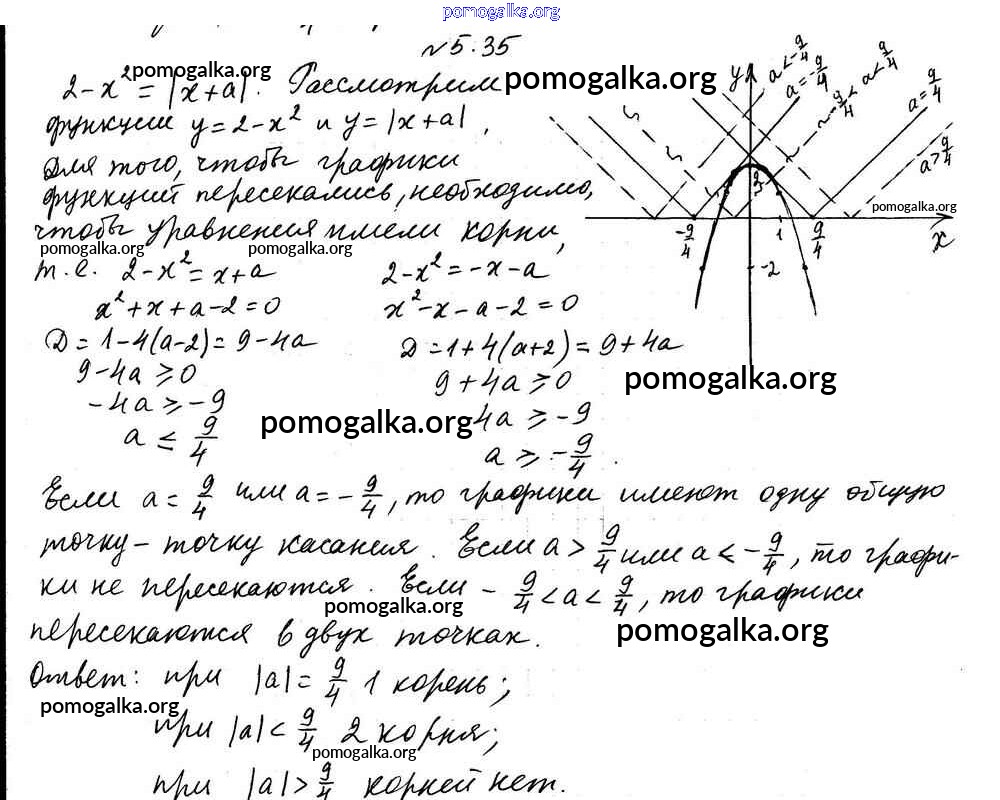 pomogalka.org
№5.35
2-x² = |x+a|. Рассмотрим
pomogalka.org
pomogalka.org
функции y=2-x² и y=|x+a|,
Для того, чтобы графики
функций пересекались, необходимо,
чтобы уравнения имели корни,
pomogalka.org
pomogalka.org
т.е. 2-x²=x+a
2-x²=-x-a
x²+x+a-2=0
x²-x-a-2=0
D=1-4(a-2)=9-4a
D=1+4(a+2)=9+4a
9-4a≥0
9+4a≥0
pomogalka.org
-4a≥-9
4a≥-9
pomogalka.org
a≤9/4
a≥-9/4.
y
a<-9/4
a=-9/4
-9/4<a<9/4
a=9/4
a>9/4
pomogalka.org
-9/4
9/4
1
9/4
x
-2
Если a=9/4 или a=-9/4, то графики имеют одну общую
точку-точку касания. Если a>9/4 или a<-9/4, то графи-
ки не пересекаются. Если -9/4<a<9/4, то графики
pomogalka.org
пересекаются в двух точках.
pomogalka.org
Ответ: при |a|=9/4 1 корень;
pomogalka.org
при |a|<9/4 2 корня;
pomogalka.org
при |a|>9/4 корней нет.